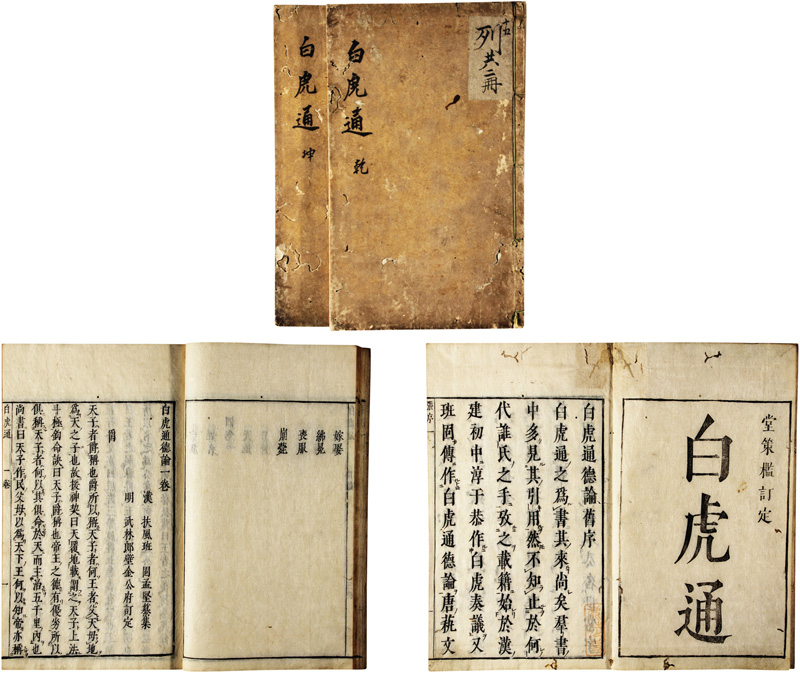 十五
列共二冊
白虎通 乾
白虎通 坤
堂策檻訂定
白虎通
白虎通德論舊序
白虎通之爲書其來尚矣羣書
中多見其引用然不知止於何
代誰氏之手攷之載籍始於漢
建初中淳于恭作白虎奏議又
班固傳作白虎通德論唐藝文
嫁娶
紼冕
喪服
崩薨
白虎通德論一卷
漢 扶風班 固孟堅纂集
明 武林郎壁金公府訂定
爵
天子者爵稱也爵所以稱天子者何王者父天母地
爲天之子也故援神契曰天覆地載謂之天子上法
斗極鉤命訣曰天子爵稱也帝王之德有優劣所以
俱稱天子者何以其俱命於天而主治五千里內也
尚書曰天子作民父母以爲天下王何以知帝亦稱
白虎通 一卷 一